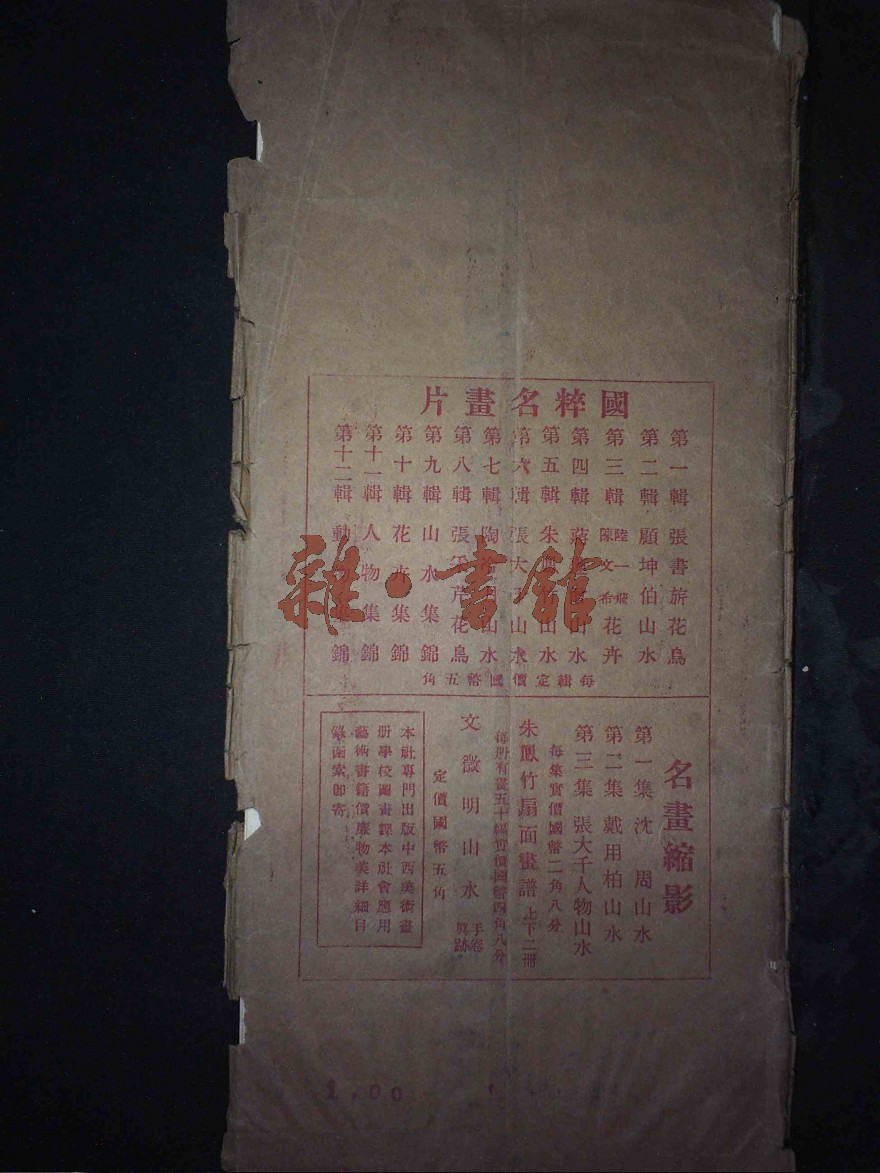 國粹名畫片
第一輯 張書旂花鳥
第二輯 顧坤伯山水
第三輯 陸一飛 陳文希 花卉
第四輯 山水
第五輯 朱 山水
第六輯 張大千山水
第七輯 陶 山水
第八輯 張 芹花鳥
第九輯 山水集錦
第十輯 花卉集錦
第十一輯 人物集錦
第十二輯 動物集錦
每輯定價國幣五角
名畫縮影
第一集 沈周山水
第二集 戴用柏山水
第三集 張大千人物山水
每集實價國幣二角八分
朱鳳竹扇面畫譜 上下二冊
每册有畫五十幅實價國幣四角八分
文徵明山水 手卷真跡
定價國幣五角
本社專門出版中西美術畫
册學校圖畫課本社會應用
藝術書籍價廉物美詳細目
錄函索即寄
1.00
雜·書館